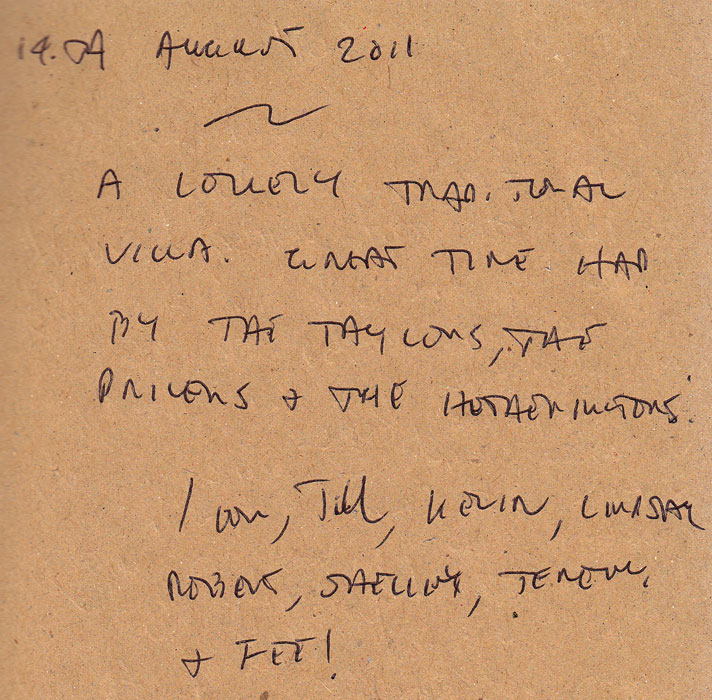 AUGUST 2011
A LOVELY TRADITIONAL
VILLA. GREAT TIME HAD
BY THE TAYLORS, THE
& THE HETHERINGTONS.
Jill, KEVIN, LINDSAY
ROBERT, JEREMY,
& FEE!